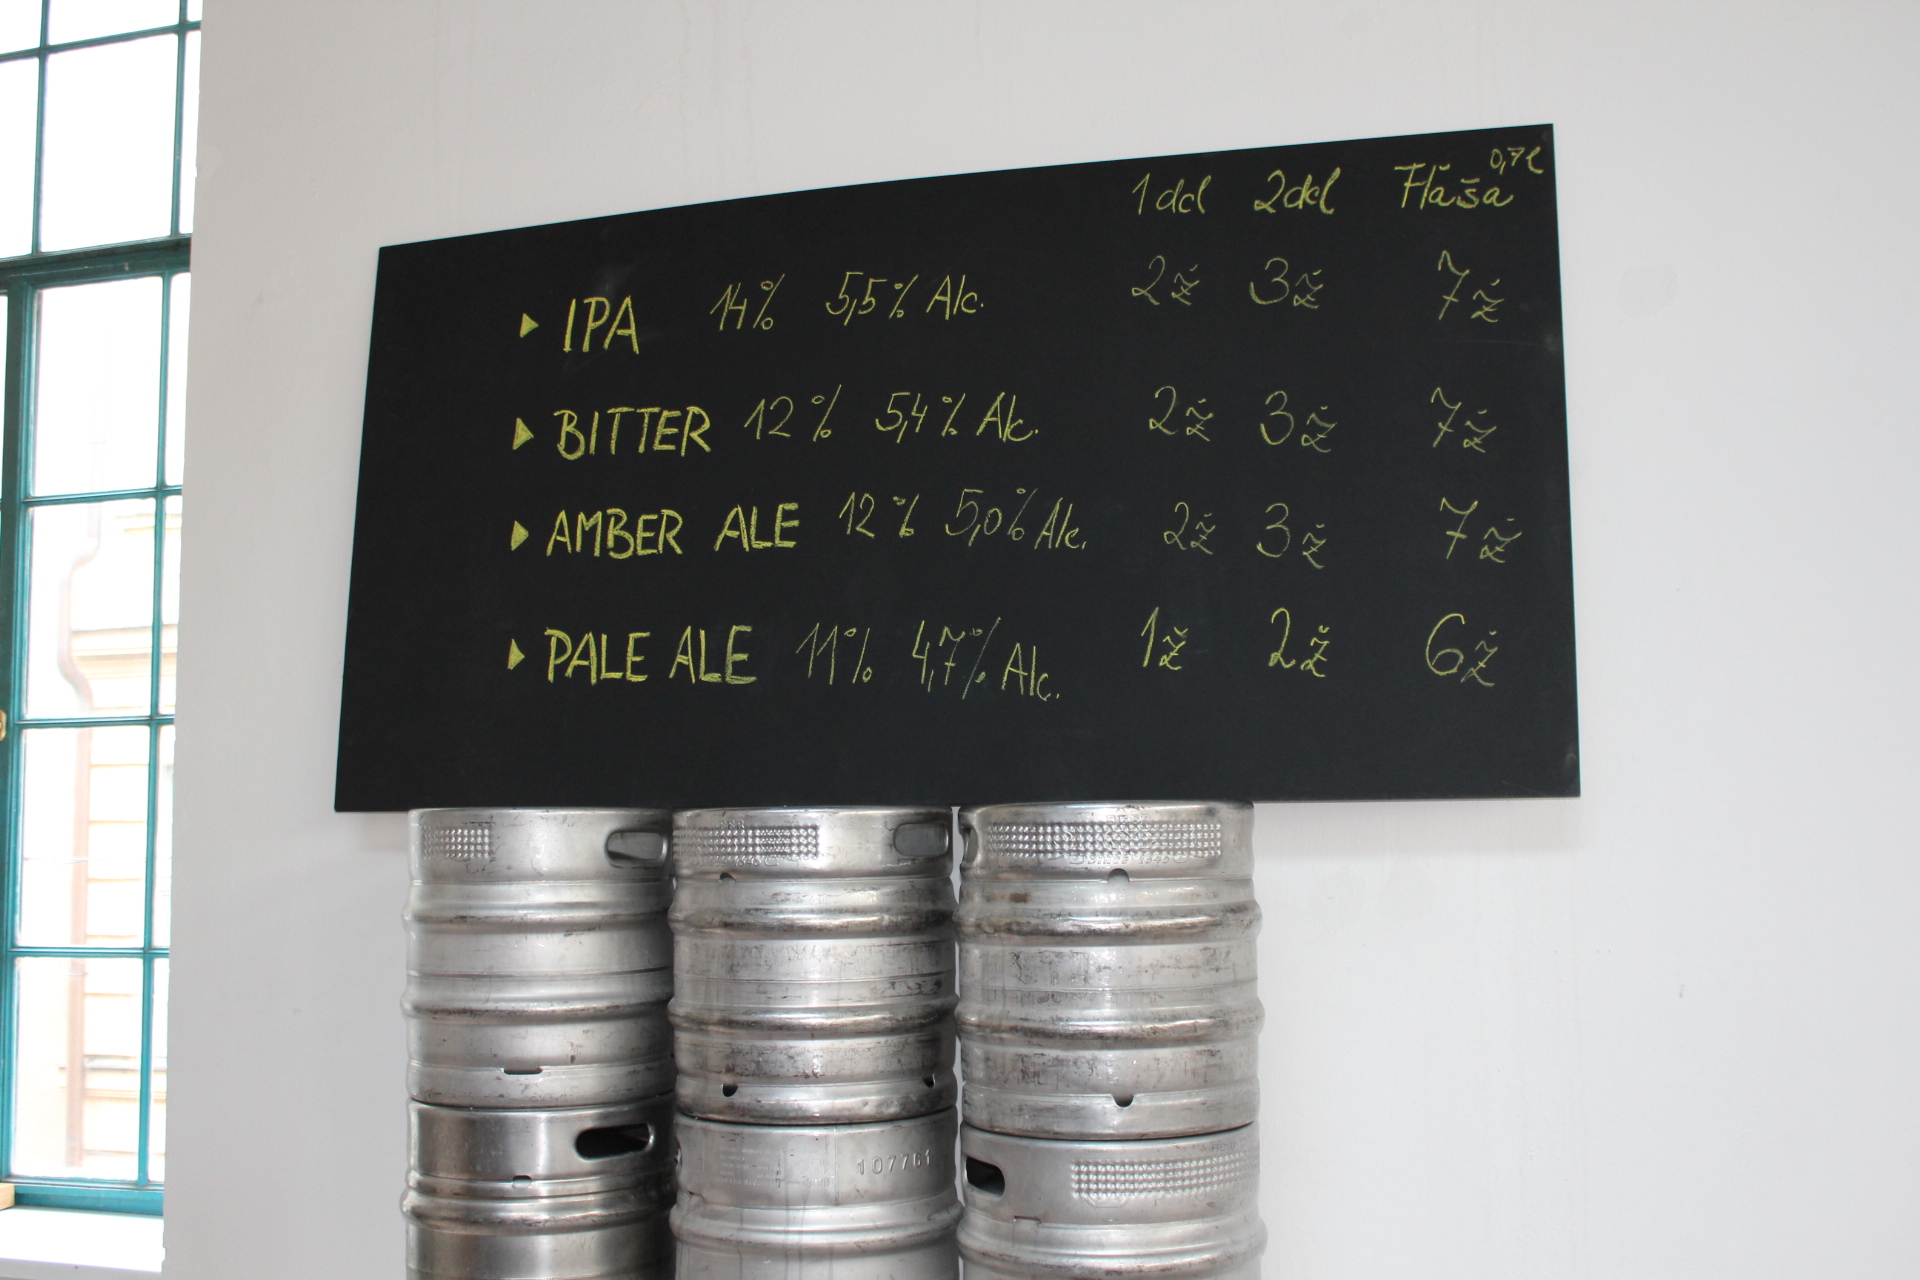 1dcl 2dcl Fľaša 0,7l
IPA 14% 5,5% Alc. 2ž 3ž 7ž
BITTER 12% 5,4% Alc. 2ž 3ž 7ž
AMBER ALE 12% 5,0% Alc. 2ž 3ž 7ž
PALE ALE 11% 4,7% Alc. 1ž 2ž 6ž
107761